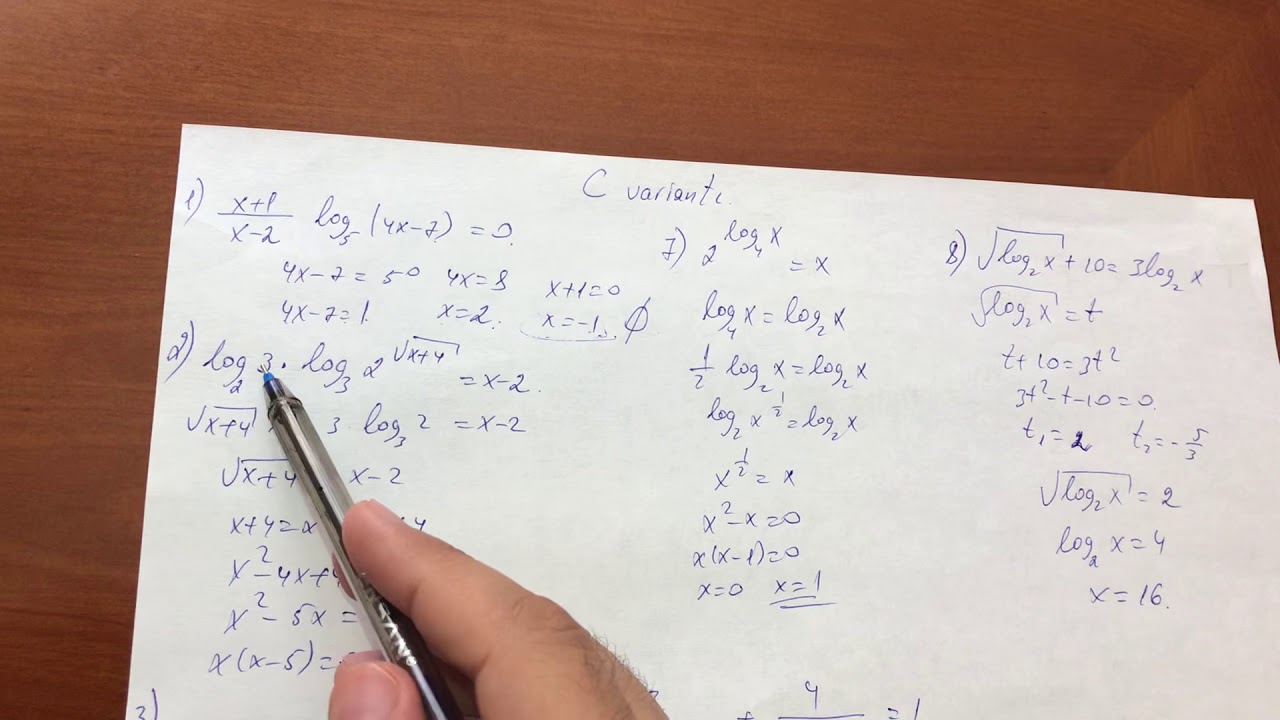 C variantı.
1) x+1/x-2 log₅(4x-7) = 0.
4x-7=5⁰ 4x=8 x+1=0
4x-7=1. x=2. x=-1. ∅
2) log₂3 · log₃2^√(x+4) = x-2.
√(x+4) 3 · log₃2 = x-2
√(x+4) x-2
x+4=x
x²-4x+4
x²-5x=
x(x-5)=
3)
7) 2^(log₄x) = x
log₄x=log₂x
1/2 log₂x=log₂x
log₂x^(1/2)=log₂x
x^(1/2) = x
x²-x=0
x(x-1)=0
x=0 x=1
8) √(log₂x)+10=3log₂x
√(log₂x)=t
t+10=3t²
3t²-t-10=0.
t₁=2 t₂=-5/3
√(log₂x)=2
log₂x=4
x=16.
+ 4 =1